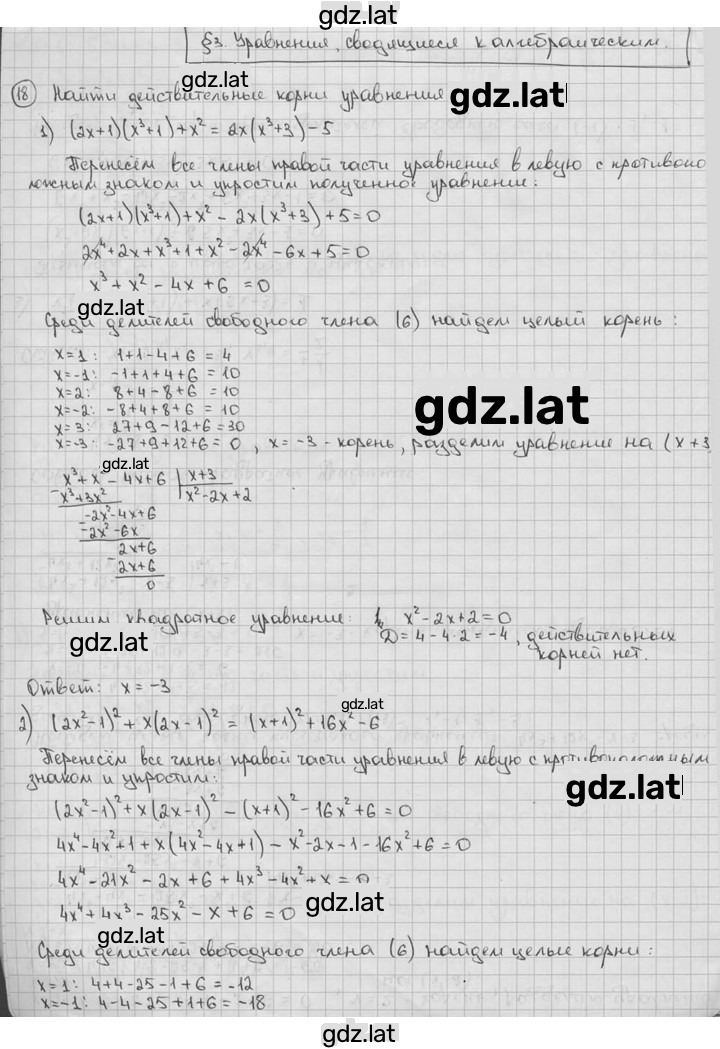 gdz.lat
§3. Уравнения, сводящиеся к алгебраическим.
gdz.lat
18 Найти действительные корни уравнения gdz.lat
1) (2x+1)(x³+1)+x² = 2x(x³+3)-5
Перенесём все члены правой части уравнения в левую с противопо
ложным знаком и упростим полученное уравнение:
(2x+1)(x³+1)+x² - 2x(x³+3)+5=0
2x⁴+2x+x³+1+x²-2x⁴-6x+5=0
x³+x²-4x+6 =0
gdz.lat
Среди делителей свободного члена (6) найдем целый корень:
x=1: 1+1-4+6=4
x=-1: -1+1+4+6=10
x=2: 8+4-8+6=10
x=-2: -8+4+8+6=10
gdz.lat
x=3: 27+9-12+6=30
x=-3: -27+9+12+6=0, x=-3 - корень, разделим уравнение на (x+3
gdz.lat
x³+x²-4x+6 | x+3
x³+3x² x²-2x+2
-2x²-4x+6
-2x²-6x
2x+6
2x+6
0
Решим квадратное уравнение: x²-2x+2=0
gdz.lat
D=4-4·2=-4, действительных
корней нет.
Ответ: x=-3
gdz.lat
2) (2x²-1)²+x(2x-1)² = (x+1)²+16x²-6
Перенесём все члены правой части уравнения в левую с противоположным
знаком и упростим:
gdz.lat
(2x²-1)²+x(2x-1)²-(x+1)²-16x²+6=0
4x⁴-4x²+1+x(4x²-4x+1)-x²-2x-1-16x²+6=0
4x⁴-21x²-2x+6+4x³-4x²+x=0
4x⁴+4x³-25x²-x+6=0
gdz.lat
gdz.lat
Среди делителей свободного члена (6) найдем целые корни:
x=1: 4+4-25-1+6=-12
x=-1: 4-4-25+1+6=-18
gdz.lat